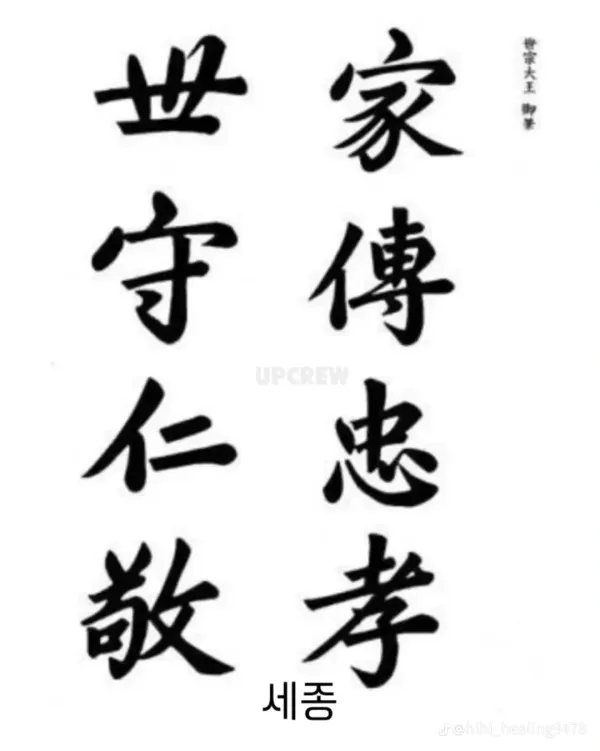 世宗大王 御筆
家傳忠孝
世守仁敬
UPCREW
세종
@hihi_healing3478